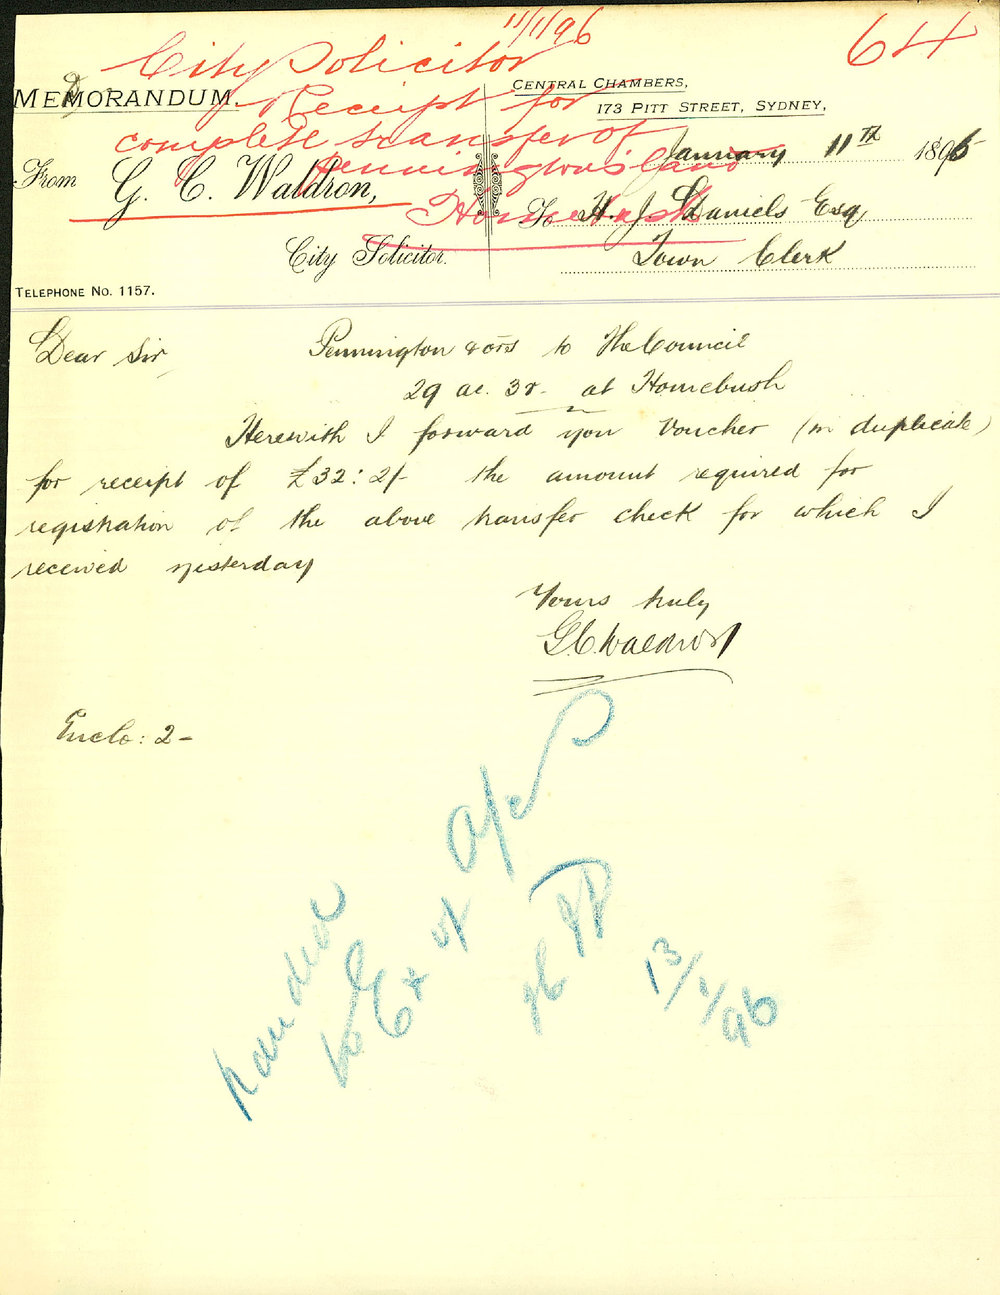 11/1/96
64
City Solicitor
Receipt for
complete transfer of
Pennington's land
Homebush
MEMORANDUM.
CENTRAL CHAMBERS,
173 PITT STREET, SYDNEY,
January 11th 1896
From G. C. Waldron,
City Solicitor.
To H. J. Daniels Esq
Town Clerk
TELEPHONE No. 1157.
Dear Sir
Pennington & ors to The Council
29 ac. 3r. at Homebush
Herewith I forward you Voucher (in duplicate)
for receipt of £32:2/- the amount required for
registration of the above transfer check for which I
received yesterday
Yours truly
G.C. Waldron
Enclo: 2-
handed
to Ex of
13/1/96